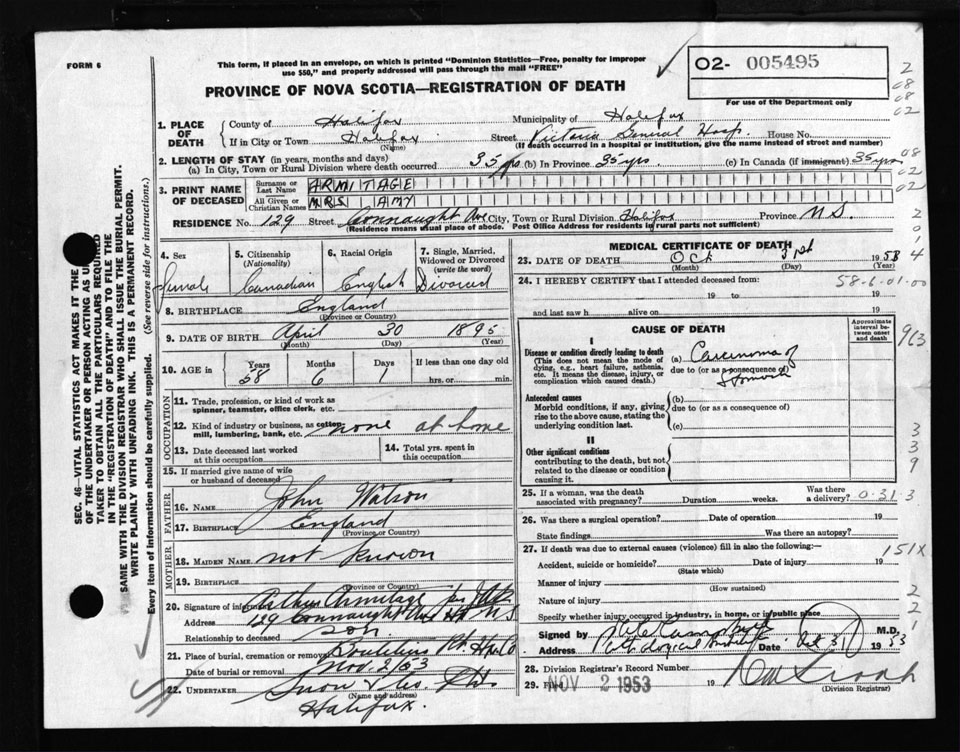 FORM 6
This form, if placed in an envelope, on which is printed "Dominion Statistics—Free, penalty for improper
use $50," and properly addressed will pass through the mail "FREE"
O2- 005495
For use of the Department only
PROVINCE OF NOVA SCOTIA—REGISTRATION OF DEATH
1. PLACE OF DEATH
County of Halifax Municipality of Halifax
If in City or Town Halifax Street Victoria General Hosp. House No.
(Name) (If death occurred in a hospital or institution, give the name instead of street and number)
2. LENGTH OF STAY (in years, months and days)
(a) In City, Town or Rural Division where death occurred 35 yrs (b) In Province 35 yrs. (c) In Canada (if immigrant) 35 yrs
3. PRINT NAME OF DECEASED
Surname or Last Name ARMITAGE
All Given or Christian Names MRS AMY
RESIDENCE No. 129 Street Connaught Ave City, Town or Rural Division Halifax Province N.S.
(Residence means usual place of abode. Post Office Address for residents in rural parts not sufficient)
4. Sex Female
5. Citizenship (Nationality) Canadian
6. Racial Origin English
7. Single, Married, Widowed or Divorced (write the word) Divorced
8. BIRTHPLACE England
(Province or Country)
9. DATE OF BIRTH April 30 1895
(Month) (Day) (Year)
10. AGE in Years 58 Months 6 Days 1 If less than one day old
hrs. or min.
OCCUPATION
11. Trade, profession, or kind of work as
spinner, teamster, office clerk, etc.
12. Kind of industry or business, as cotton
mill, lumbering, bank, etc. none at home
13. Date deceased last worked
at this occupation
14. Total yrs. spent in
this occupation
15. If married give name of wife
or husband of deceased
FATHER
16. Name John Watson
17. Birthplace England
(Province or Country)
MOTHER
18. MAIDEN NAME not known
19. Birthplace
(Province or Country)
20. Signature of informant Arthur Armitage
Address 129 Connaught Ave Hfx N.S.
Relationship to deceased son
21. Place of burial, cremation or removal
Date of burial or removal Nov. 2/53
22. UNDERTAKER Snow & Co. Ltd
(Name and address)
Halifax.
MEDICAL CERTIFICATE OF DEATH
23. DATE OF DEATH Oct 31st 1953
(Month) (Day) (Year)
24. I HEREBY CERTIFY that I attended deceased from 58-6-01-00
19 to 19
and last saw h alive on 19
CAUSE OF DEATH
Approximate interval between onset and death
I
Disease or condition directly leading to death
(This does not mean the mode of
dying, e.g., heart failure, asthenia,
etc. It means the disease, injury, or
complication which caused death.)
(a) Carcinoma of
due to (or as a consequence of)
Stomach
Antecedent causes
Morbid conditions, if any, giving
rise to the above cause, stating the
underlying condition last.
(b)
due to (or as a consequence of)
(c)
II
Other significant conditions
contributing to the death, but not
related to the disease or condition
causing it.
25. If a woman, was the death
associated with pregnancy? Duration weeks. Was there
a delivery? 0-31-3
26. Was there a surgical operation? Date of operation 19
State findings Was there an autopsy?
27. If death was due to external causes (violence) fill in also the following:
151X
Accident, suicide or homicide? Date of injury 19
(State which)
Manner of injury
(How sustained)
Nature of injury
Specify whether injury occurred in industry, in home, or in public place
Signed by M.D.
Address Pathological Institute Date Oct 31 1953
28. Division Registrar's Record Number
29. Filed NOV 2 1953 19
(Division Registrar)
SEC. 46—VITAL STATISTICS ACT MAKES IT THE
OF THE UNDERTAKER OR PERSON ACTING AS
TAKER TO OBTAIN ALL THE PARTICULARS REQUIRED
IN THE "REGISTRATION OF DEATH" AND TO FILE THE
SAME WITH THE DIVISION REGISTRAR WHO SHALL ISSUE THE BURIAL PERMIT.
WRITE PLAINLY WITH UNFADING INK. THIS IS A PERMANENT RECORD.
Every item of information should be carefully supplied. (See reverse side for instructions.)
2
08
08
02
08
02
02
2
0
1
4
9(3
3
3
9
2
2
1